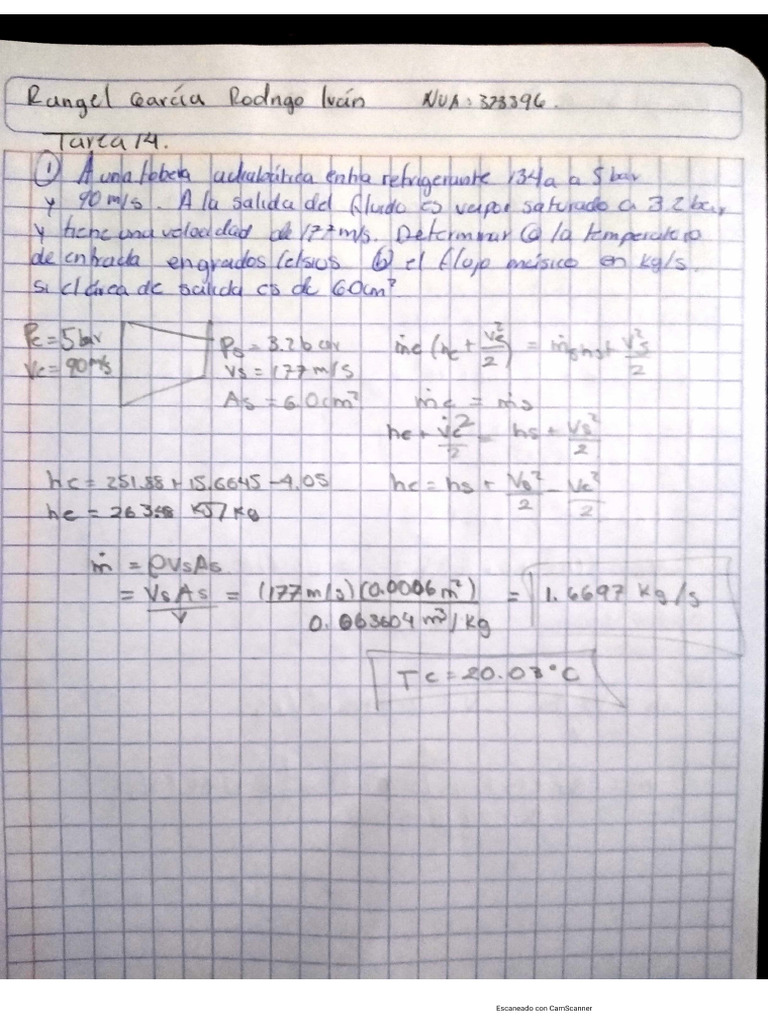 Rangel García Rodrigo Iván NUA: 373396.
Tarea 14.
① A una tobera adiabática entra refrigerante 134a a 5 bar
y 90 m/s. A la salida del fluido es vapor saturado a 3.2 bar
y tiene una velocidad de 177 m/s. Determinar @ la temperatura
de entrada en grados Celsius (b) el flujo másico en kg/s.
si el área de salida es de 6.0 cm²
Pe = 5 bar
Ve = 90 m/s
Ps = 3.2 bar
Vs = 177 m/s
As = 6.0 cm²
ṁe (he + Ve²/2) = ṁs hs + Vs²/2
ṁe = ṁs
he + Ve²/2 = hs + Vs²/2
he = hs + Vs²/2 - Ve²/2
he = 251.88 + 15.6645 - 4.05
he = KJ/kg
ṁ = ρVsAs
= VsAs/v = (177 m/s)(0.0006 m²)/0.063604 m³/kg = 1.6697 kg/s
Te = 20.03°C
Escaneado con CamScanner